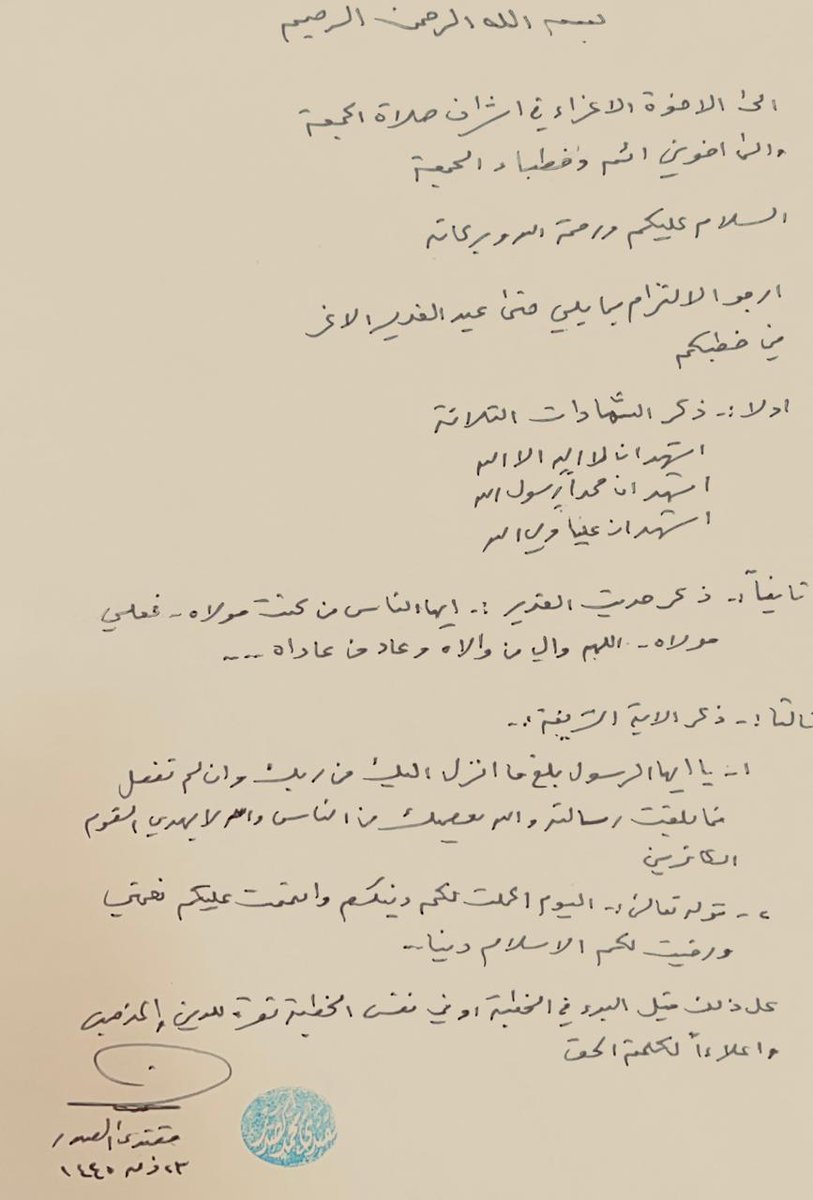 بسم الله الرحمن الرحيم
الى الاخوة الاعزاء في اشراف صلاة الجمعة
والى اخوتي ائمة وخطباء الجمعة
السلام عليكم ورحمة الله وبركاته
ارجو الالتزام بما يلي حتى عيد الغدير الاغر
في خطبكم
اولا :- ذكر الشهادات الثلاثة
اشهد ان لا اله الا الله
اشهد ان محمداً رسول الله
اشهد ان علياً ولي الله
ثانياً :- ذكر حديث الغدير :- ايها الناس من كنت مولاه - فعلي
مولاه - اللهم والي من والاه وعاد من عاداه ....
ثالثا :- ذكر الاية الشريفة :-
١- يا ايها الرسول بلغ ما انزل اليك من ربك وان لم تفعل
فما بلغت رسالته والله يعصمك من الناس والله لا يهدي القوم
الكافرين
٢- قوله تعالى :- اليوم اكملت لكم دينكم واتممت عليكم نعمتي
ورضيت لكم الاسلام دينا..
كل ذلك قبل البدء في الخطبة او في نفس الخطبة نصرة للدين والمذهب
واعلاءاً لكلمة الحق
مقتدى الصدر
٢٣ ذ ق ١٤٤٥